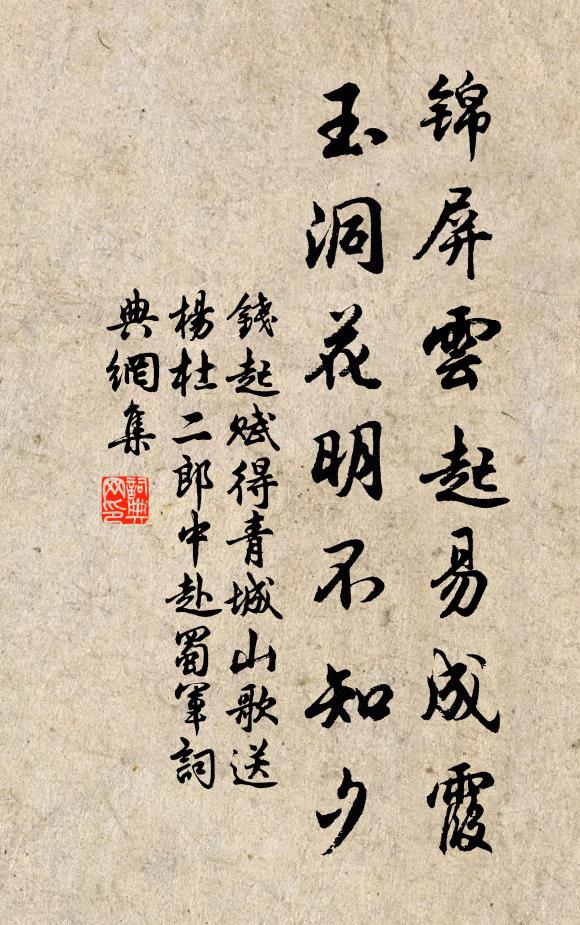 锦屏雲起易成霞
玉洞花明不知夕
錢起赋得青城山歌送
楊杜二郎中赴蜀軍詞
典網集
詞典
网印